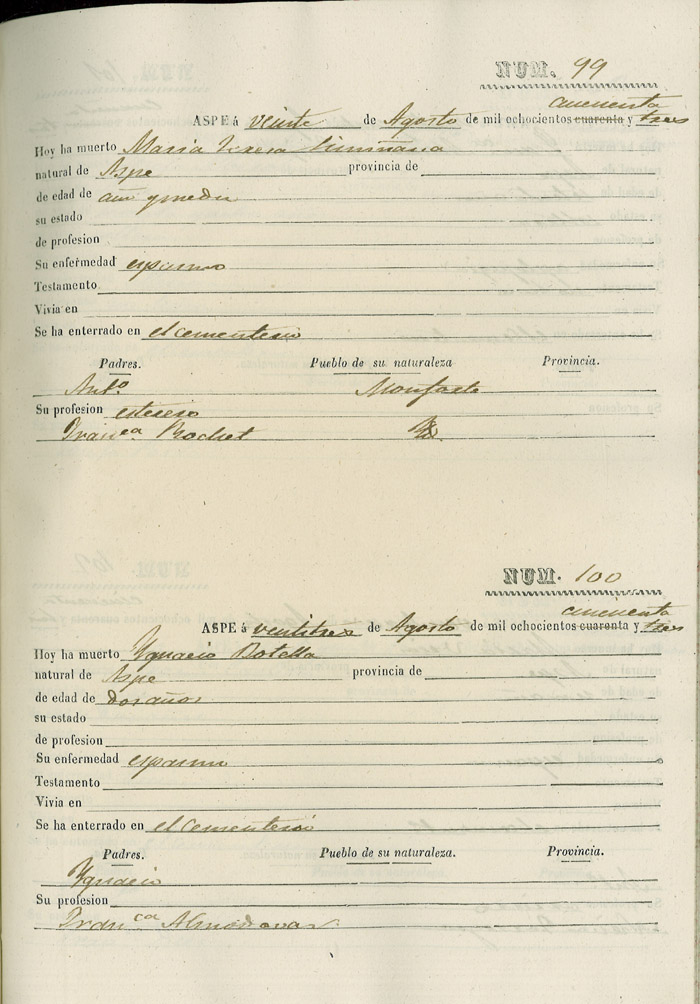 NUM. 99
cincuenta
ASPE á veinte de Agosto de mil ochocientos cuarenta y tres
Hoy ha muerto Maria Teresa Limiñana
natural de Aspe provincia de
de edad de año y medio
su estado
de profesion
Su enfermedad espasmo
Testamento
Vivia en
Se ha enterrado en el cementerio
Padres. Pueblo de su naturaleza Provincia.
Anto. Monforte
Su profesion esterero
Franca Bochet
NUM. 100
cincuenta
ASPE á ventitres de Agosto de mil ochocientos cuarenta y tres
Hoy ha muerto Ygnacio Botella
natural de Aspe provincia de
de edad de dos años
su estado
de profesion
Su enfermedad espasmo
Testamento
Vivia en
Se ha enterrado en el cementerio
Padres. Pueblo de su naturaleza. Provincia.
Ygnacio
Su profesion
Franca Almodovar